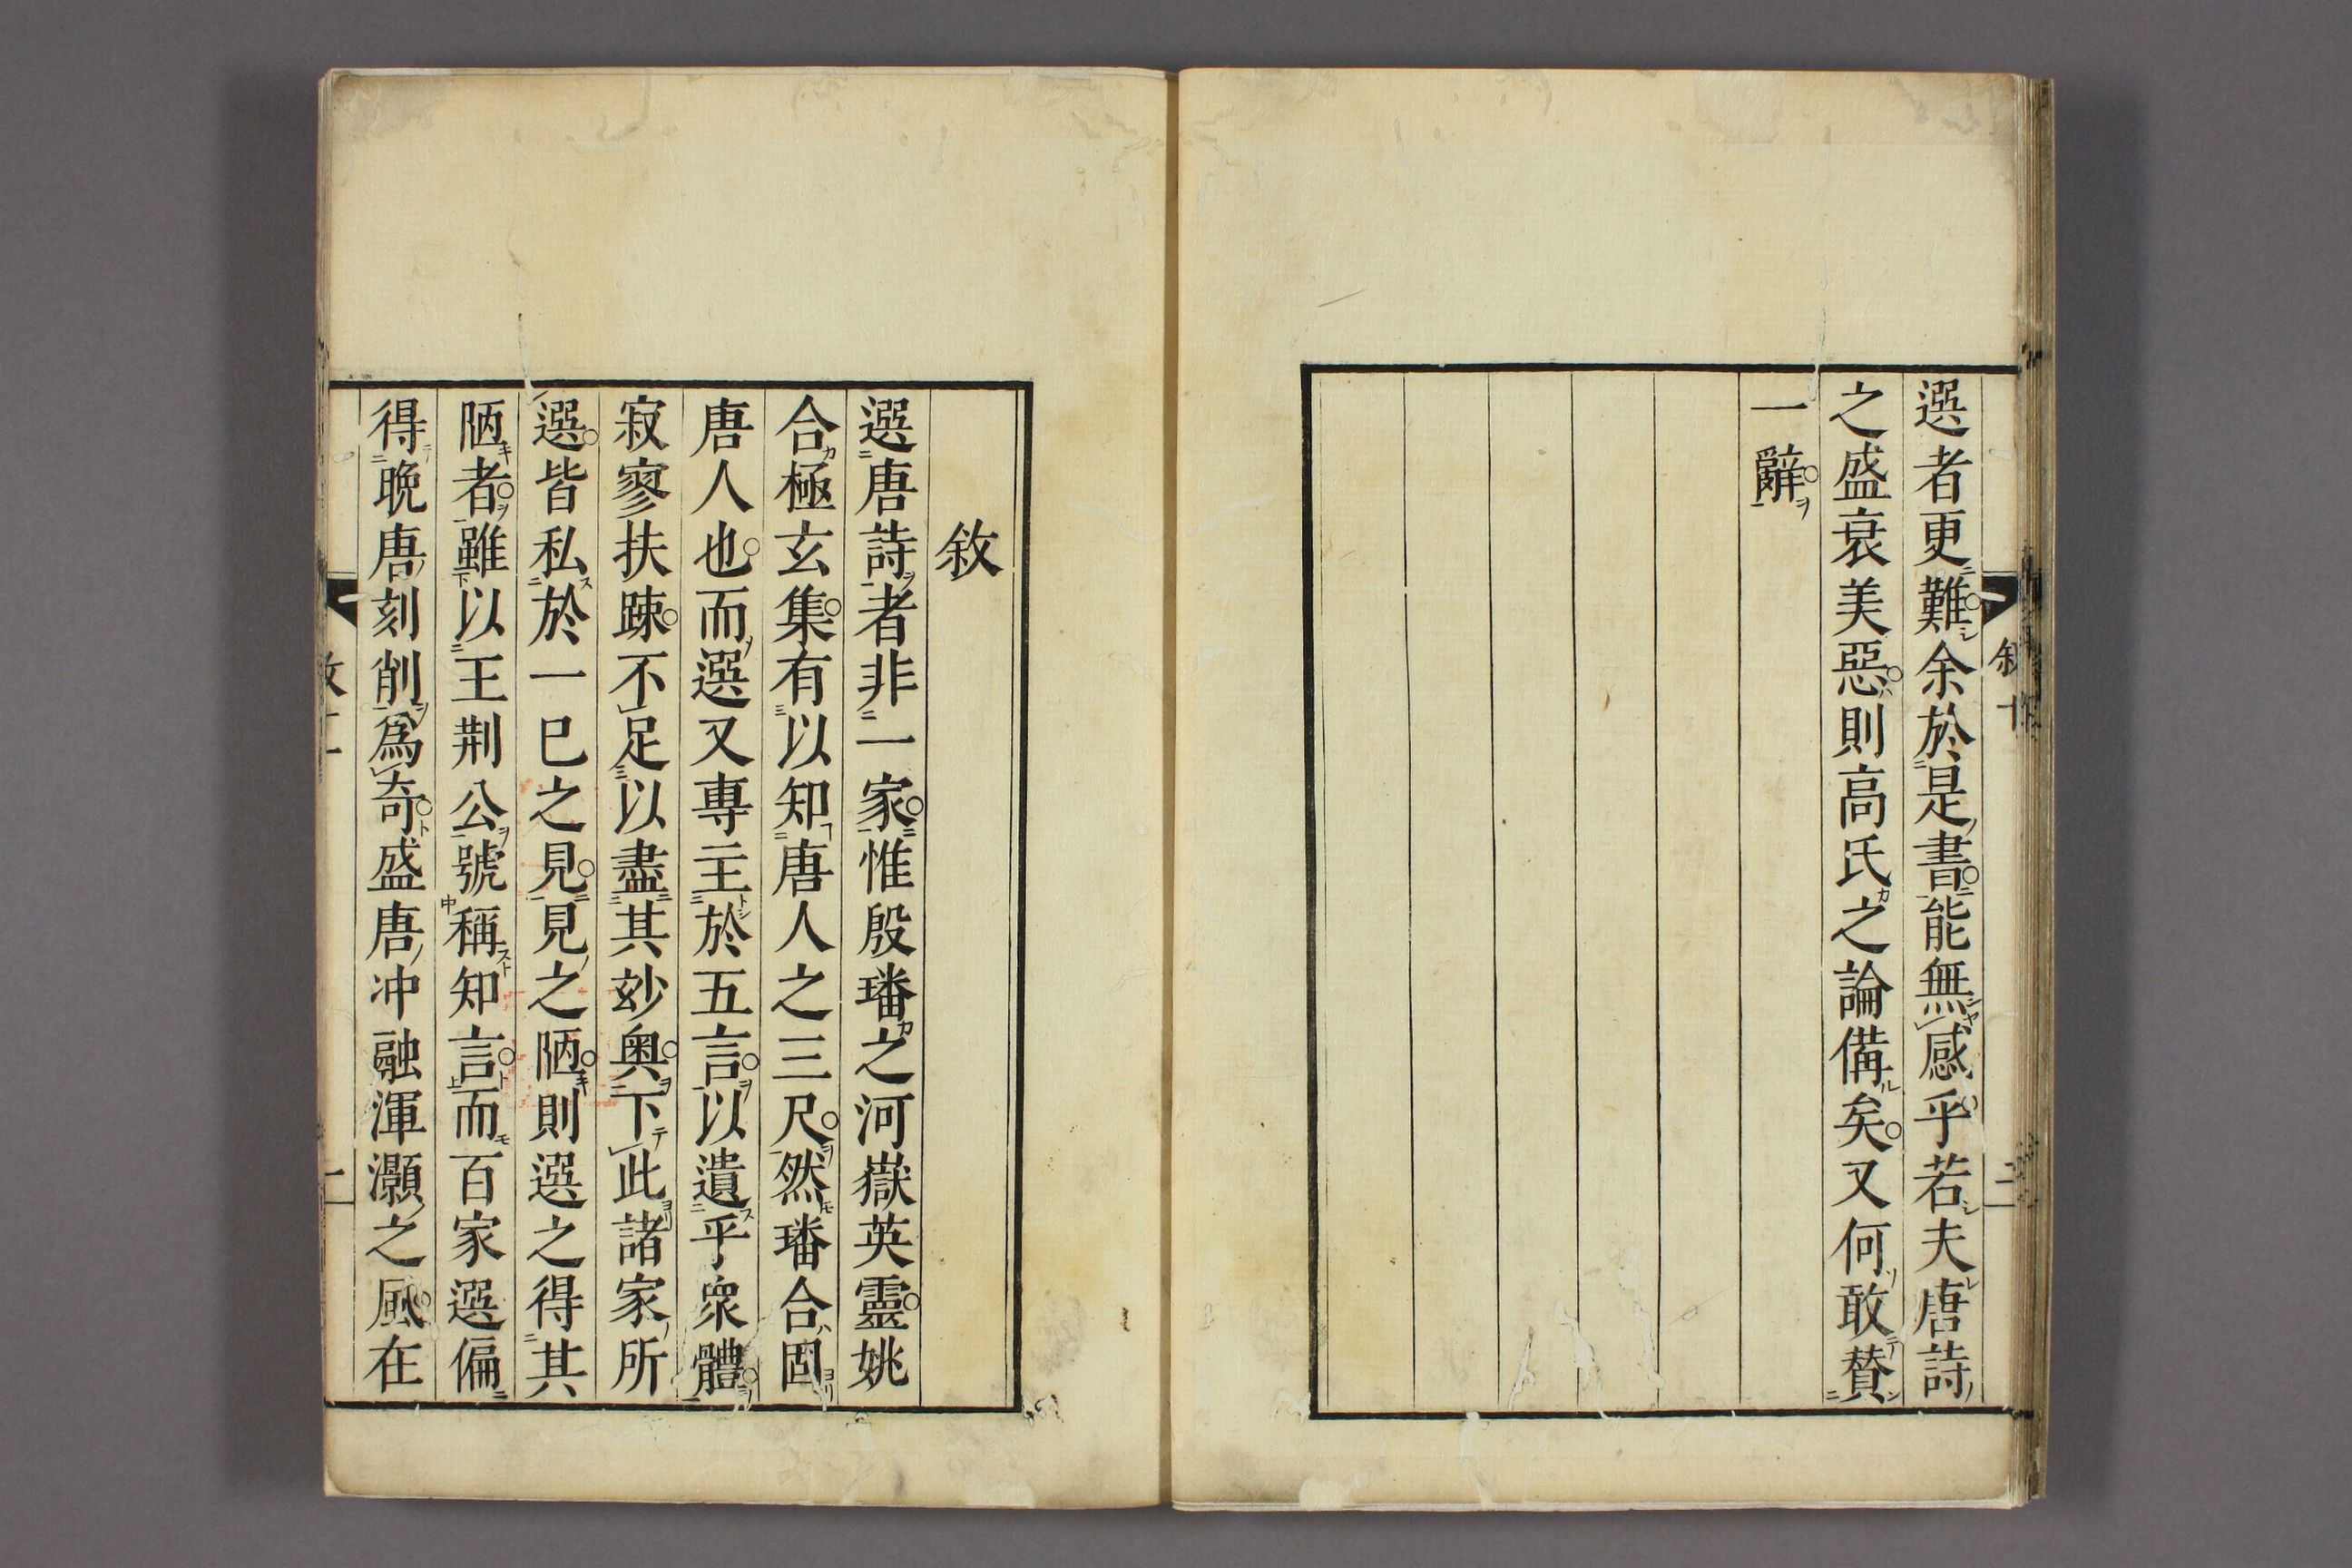 選者更難余於是書能無感乎若夫唐詩
之盛衰美惡則高氏之論備矣又何敢賛
一辭
敘
選唐詩者非一家惟殷璠之河嶽英靈姚
合極玄集有以知唐人之三尺然璠合固
唐人也而選又專主於五言以遺乎衆體
寂寥扶踈不足以盡其妙奧下此諸家所
選皆私於一巳之見見之陋則選之得其
陋者雖以王荆公號稱知言而百家選偏
得晩唐刻削爲奇盛唐冲融渾灝之風在